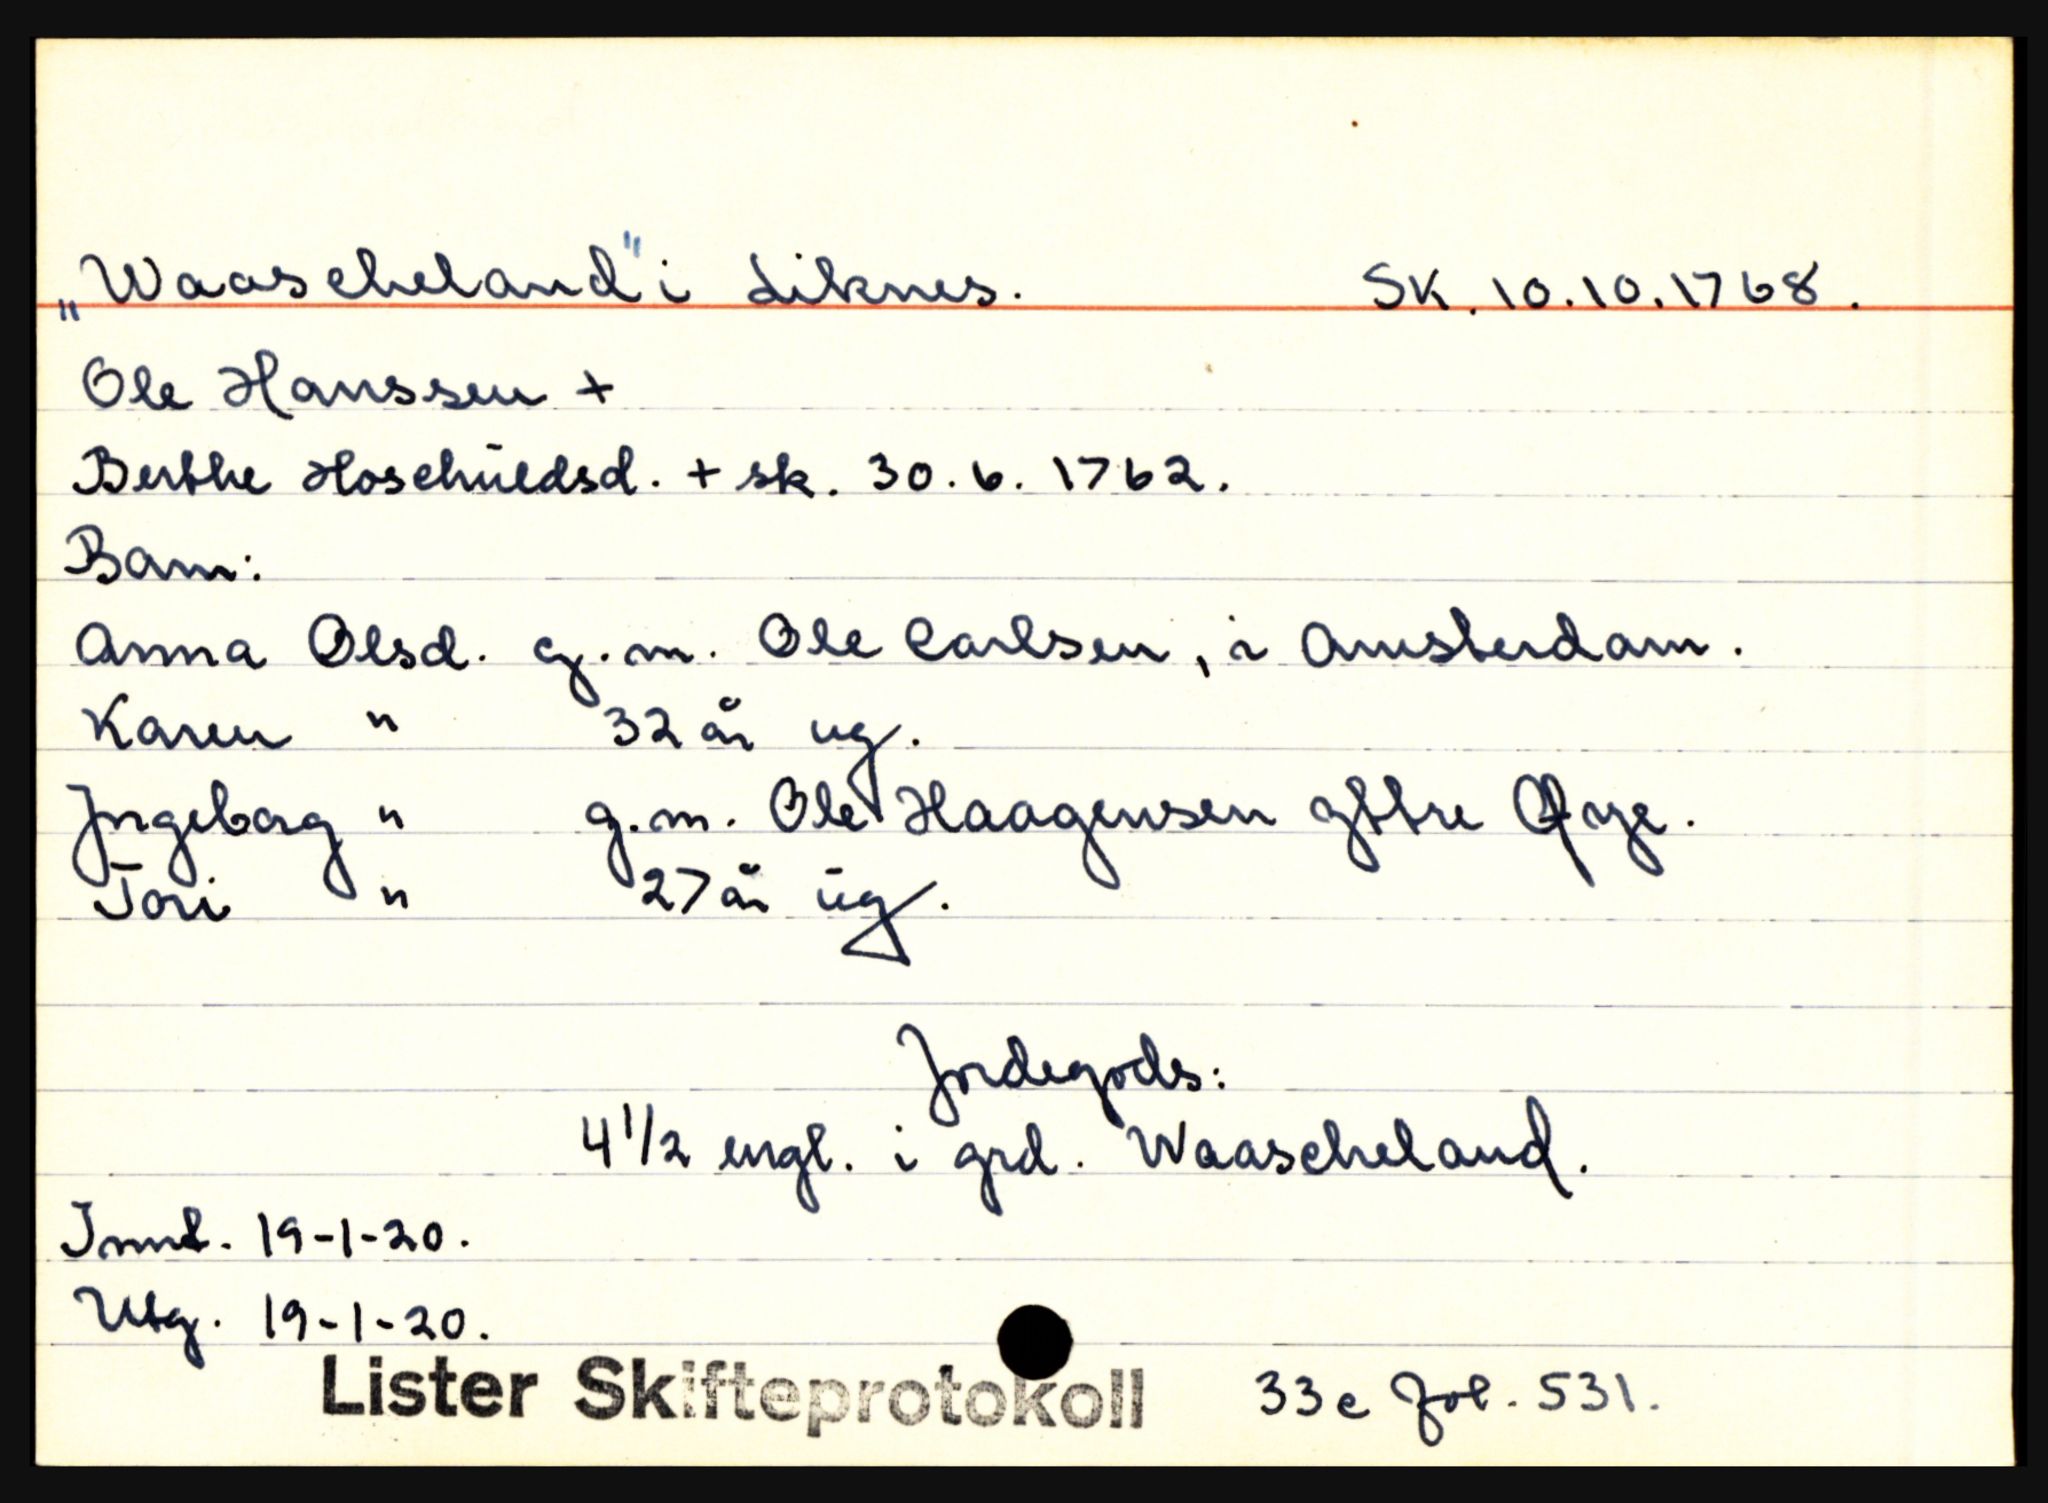 „Waascheland" i Liknes. SK. 10.10.1768.
Ole Hanssen +
Berthe Hoschüldsd. + sk. 30.6.1762.
Barn:
Anna Olsd. g.m. Ole Carlsen, i Amsterdam.
Karen " 32 år ug.
Ingeborg " g.m. Ole Haagensen yttre Øye.
Tori " 27 år ug.
Jordegods:
4 1/2 engl. i grd. Waascheland.
Innt. 19-1-20.
Utg. 19-1-20.
Lister Skifteprotokoll 33c Fol. 531.